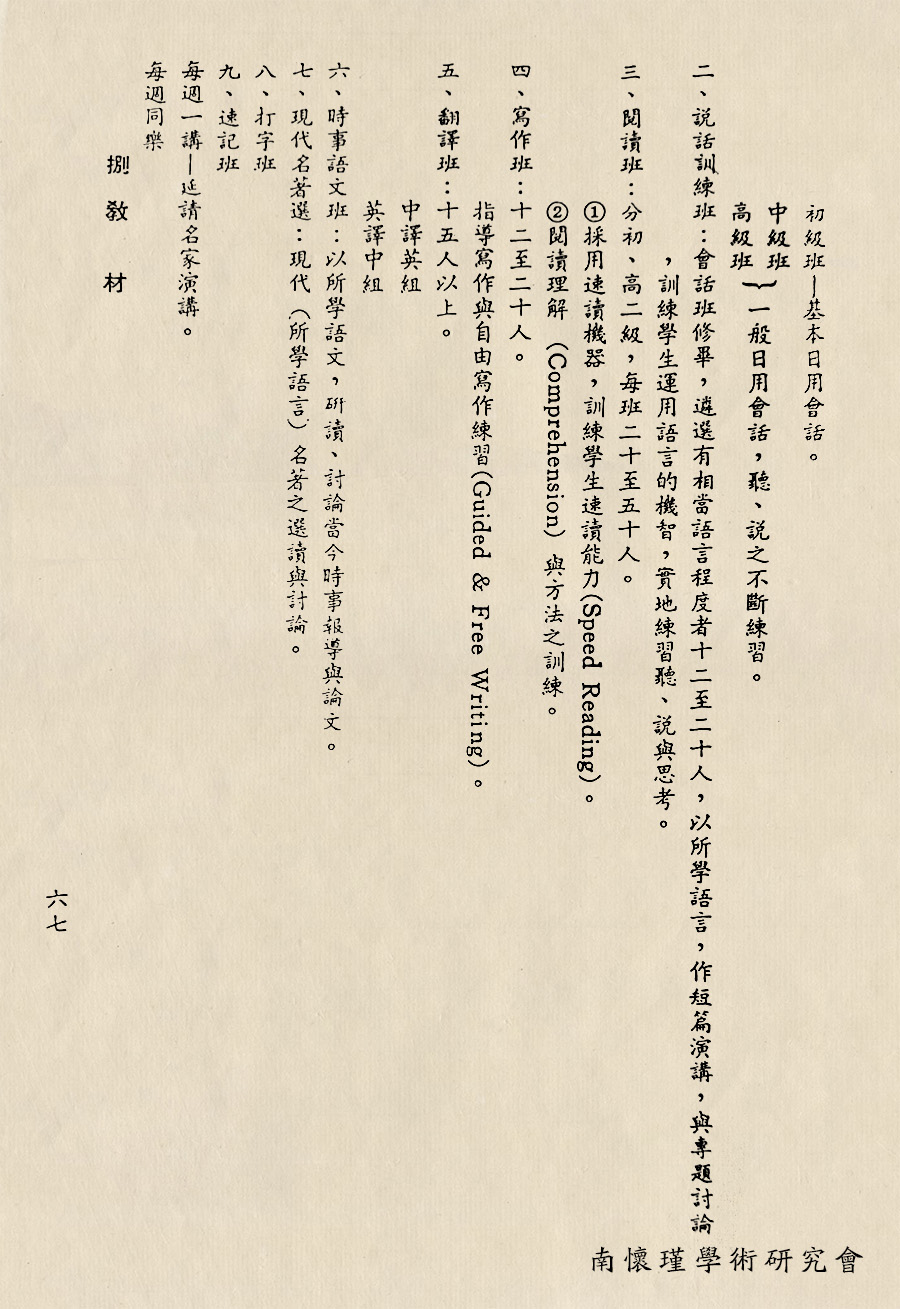 初級班—基本日用會話。
中級班
高級班｝一般日用會話，聽、説之不斷練習。
二、説話訓練班：會話班修畢，遴選有相當語言程度者十二至二十人，以所學語言，作短篇演講，與專題討論
，訓練學生運用語言的機智，實地練習聽、説與思考。
三、閱讀班：分初、高二級，每班二十至五十人。
①採用速讀機器，訓練學生速讀能力(Speed Reading)。
②閱讀理解（Comprehension）與方法之訓練。
四、寫作班：十二至二十人。
指導寫作與自由寫作練習(Guided & Free Writing)。
五、翻譯班：十五人以上。
中譯英組
英譯中組
六、時事語文班：以所學語文，研讀、討論當今時事報導與論文。
七、現代名著選：現代（所學語言）名著之選讀與討論。
八、打字班
九、速記班
每週一講—延請名家演講。
每週同樂
捌教 材
六七
南懷瑾學術研究會